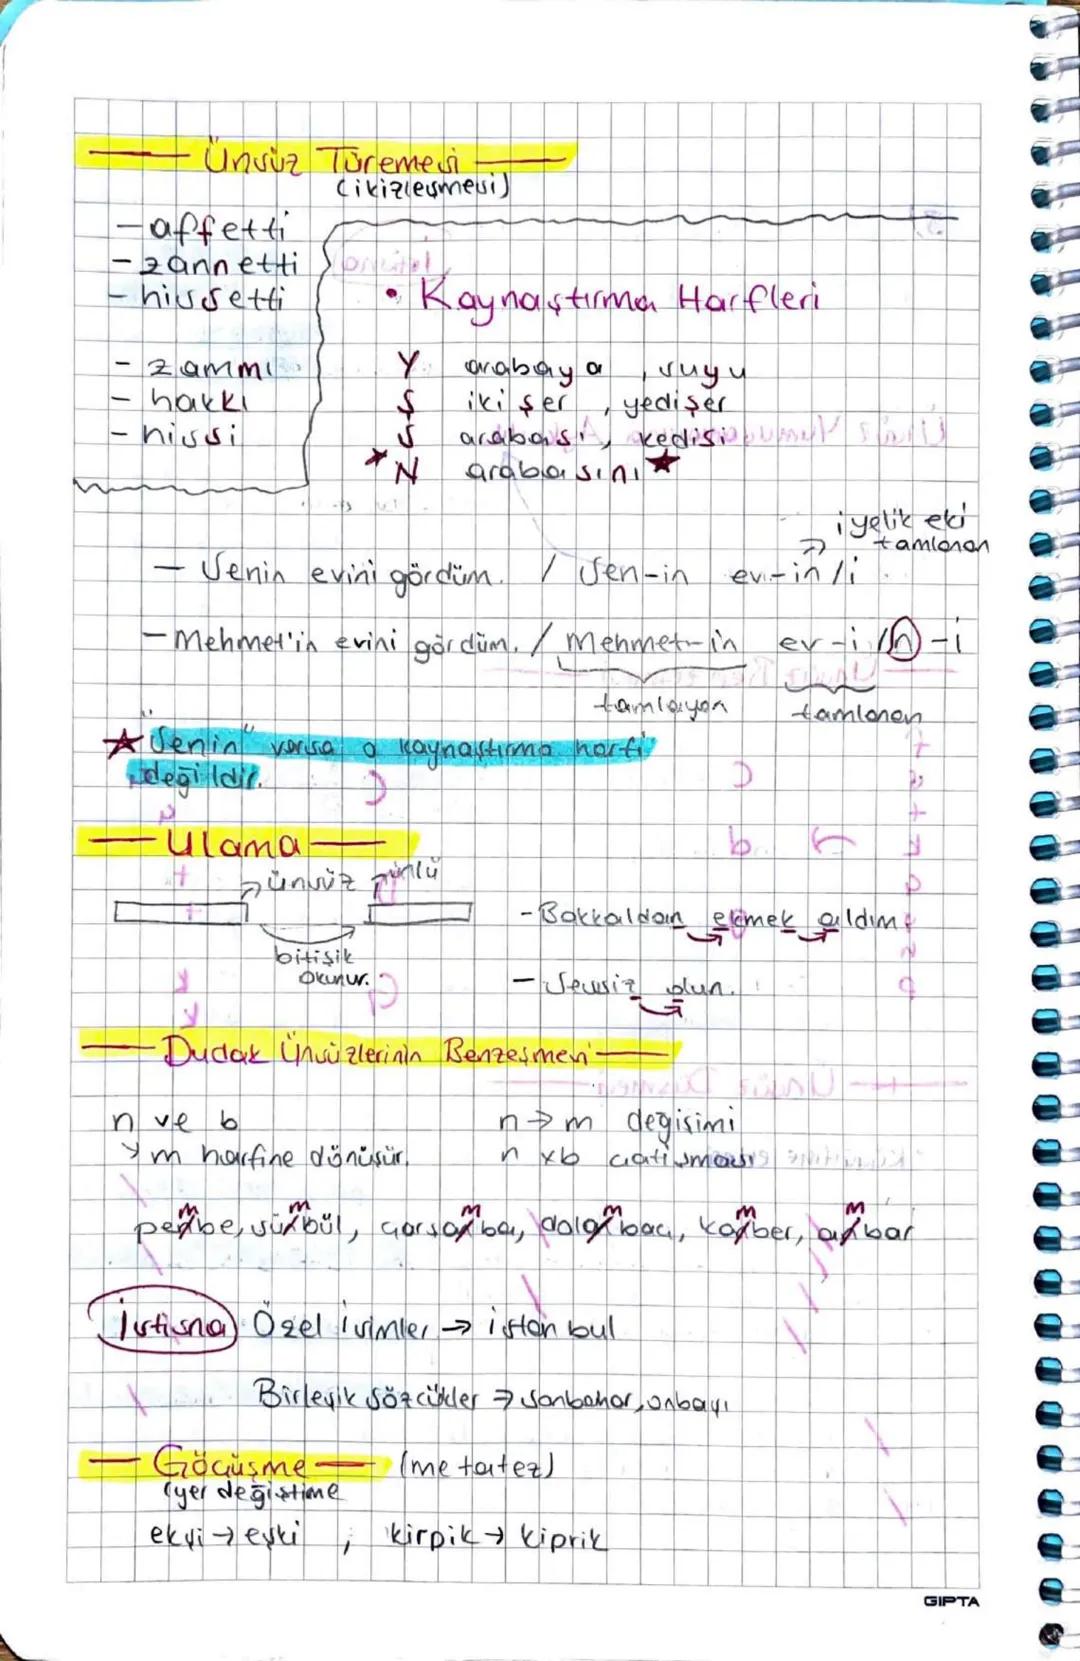 Ünsüz Türemesi
(ikizleşmesi)
- affetti
- zannetti
- hissetti
- zammı
- hakkı
- hissi
• Kaynaştırma Harfleri
Y arabaya, suyu
Ş ikişer, yedişer
S arabası, kedisi
★ N arabasını ★
iyelik eki
tamlanan
- Senin evini gördüm. / Sen-in ev-in/i
- Mehmet'in evini gördüm. / Mehmet-in ev-i/n-i
tamlayan tamlanan
★ "Senin" varsa o kaynaştırma harfi
değildir.
Ulama
ünsüz ünlü
bitişik
okunur.
- Bakkaldan ekmek aldım.
- Sessiz olun.
Dudak Ünsüzlerinin Benzeşmesi
n ve b n → m değişimi
↳ m harfine dönüşür. n x b çatışması
m m m m m m
penbe, sünbül, çarşanba, dolanbaç, kanber, anbar
İstisna Özel isimler → istanbul
Birleşik sözcükler → sonbahar, onbaşı
Göçüşme (metatez)
(yer değiştime
ekşi → eşki ; kirpik → kiprik
GIPTA